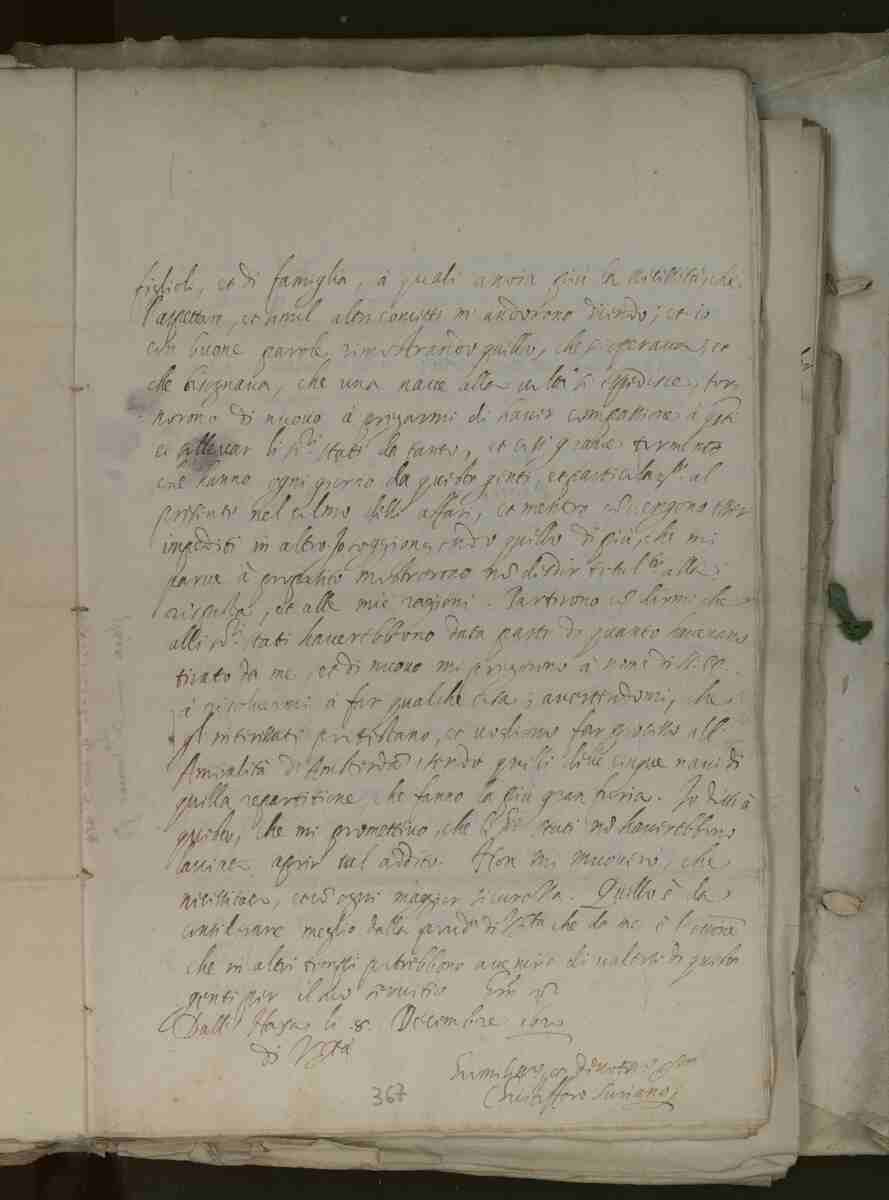 figlioli, et di famiglia, à quali ancora più la necessità che
l'aspettare, et simil altri concetti mi andorono dicendo; et io
con buone parole rimostrando quello, che si operava; et
che bisognava, che una nave alla volta si espedisce, tor,,
norono di nuovo à pregarmi di haver compassione à questi
et allevar li ss.ri stati da tanto, et così grave tormento
che hanno ogni giorno da queste genti, et particolarm.te al
presente nel colmo delli affari, et mentre convengono esser
impediti in altro
parve à proposito mostrorono non disdir total.te alla
risposta, et alle mie ragioni. Partirono con dirmi che
alli ss.ri stati haverebbono data parte di quanto havevano
ricavato da me, et di nuovo mi pregorono à nome di SS. EE.
à risolvermi à far qualche cosa; avertendomi, che
gl'interessati protestano, et vogliono far protesto all'
Amiralità di Amsterdam essendo quelli delle cinque navi di
quella repartitione che fanno la più gran furia. Io dissi à
questo, che mi promettevo, che li ss.ri stati non haverebbono
lasciato aprir tal addito. Non mi moverò, che
necessitato, et con ogni maggior sicurezza. Quello è da
considerare meglio dalla prud.a di V.ra Ser.tà che da me è l'occasione
che in altri tempi potrebbono avenire di valersi di queste
genti per il suo servitio. Gratie etc.
Dall'Haya li 8. Decembre 1620
di V. Ser.tà
humilissimo, et devotissimo ser.re
Christofforo Suriano
367